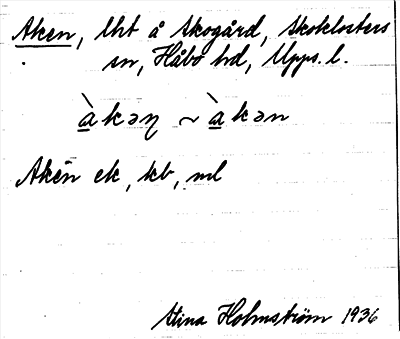 Aken, lht å Skogård, Skoklosters
sn, Håbo hd, Upps. l.
à̱kən ~ à̱kən
Akēn ek, kb, ml
Stina Holmström 1936